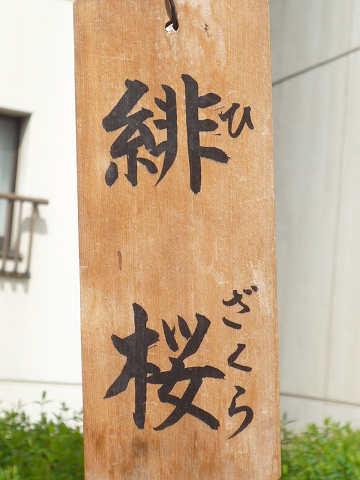 緋桜
ひざくら